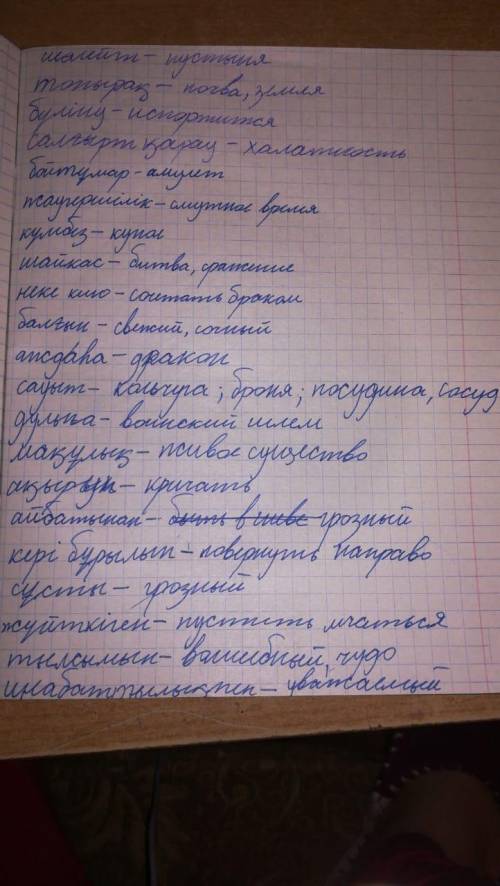 шөлейт – пустыня
топырақ – почва, земля
бүліну – испортится
салғырт қарау – халатность
бойтұмар – амулет
жаугершілік – смутное время
күмбез – купол
шайкас – битва, сражение
неке кию – сочтать браком
балғын – свежий, сочный
аждаһа – дракон
сауыт – кольчуга; броня; посудина, сосуд
дулыға – воинский шлем
мақұлық – живое существо
ақырып – кричать
айбатынан – быть в гневе грозный
кері бұрылып – повернуть направо
сұсты – грозный
жүйткіген – пустить мчаться
тылсымын – волшебный, чудо
инабаттылықпен – уважаемый